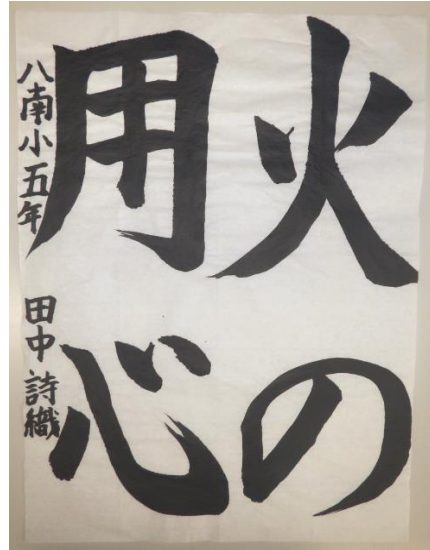 火の
用心
八南小五年 田中詩織